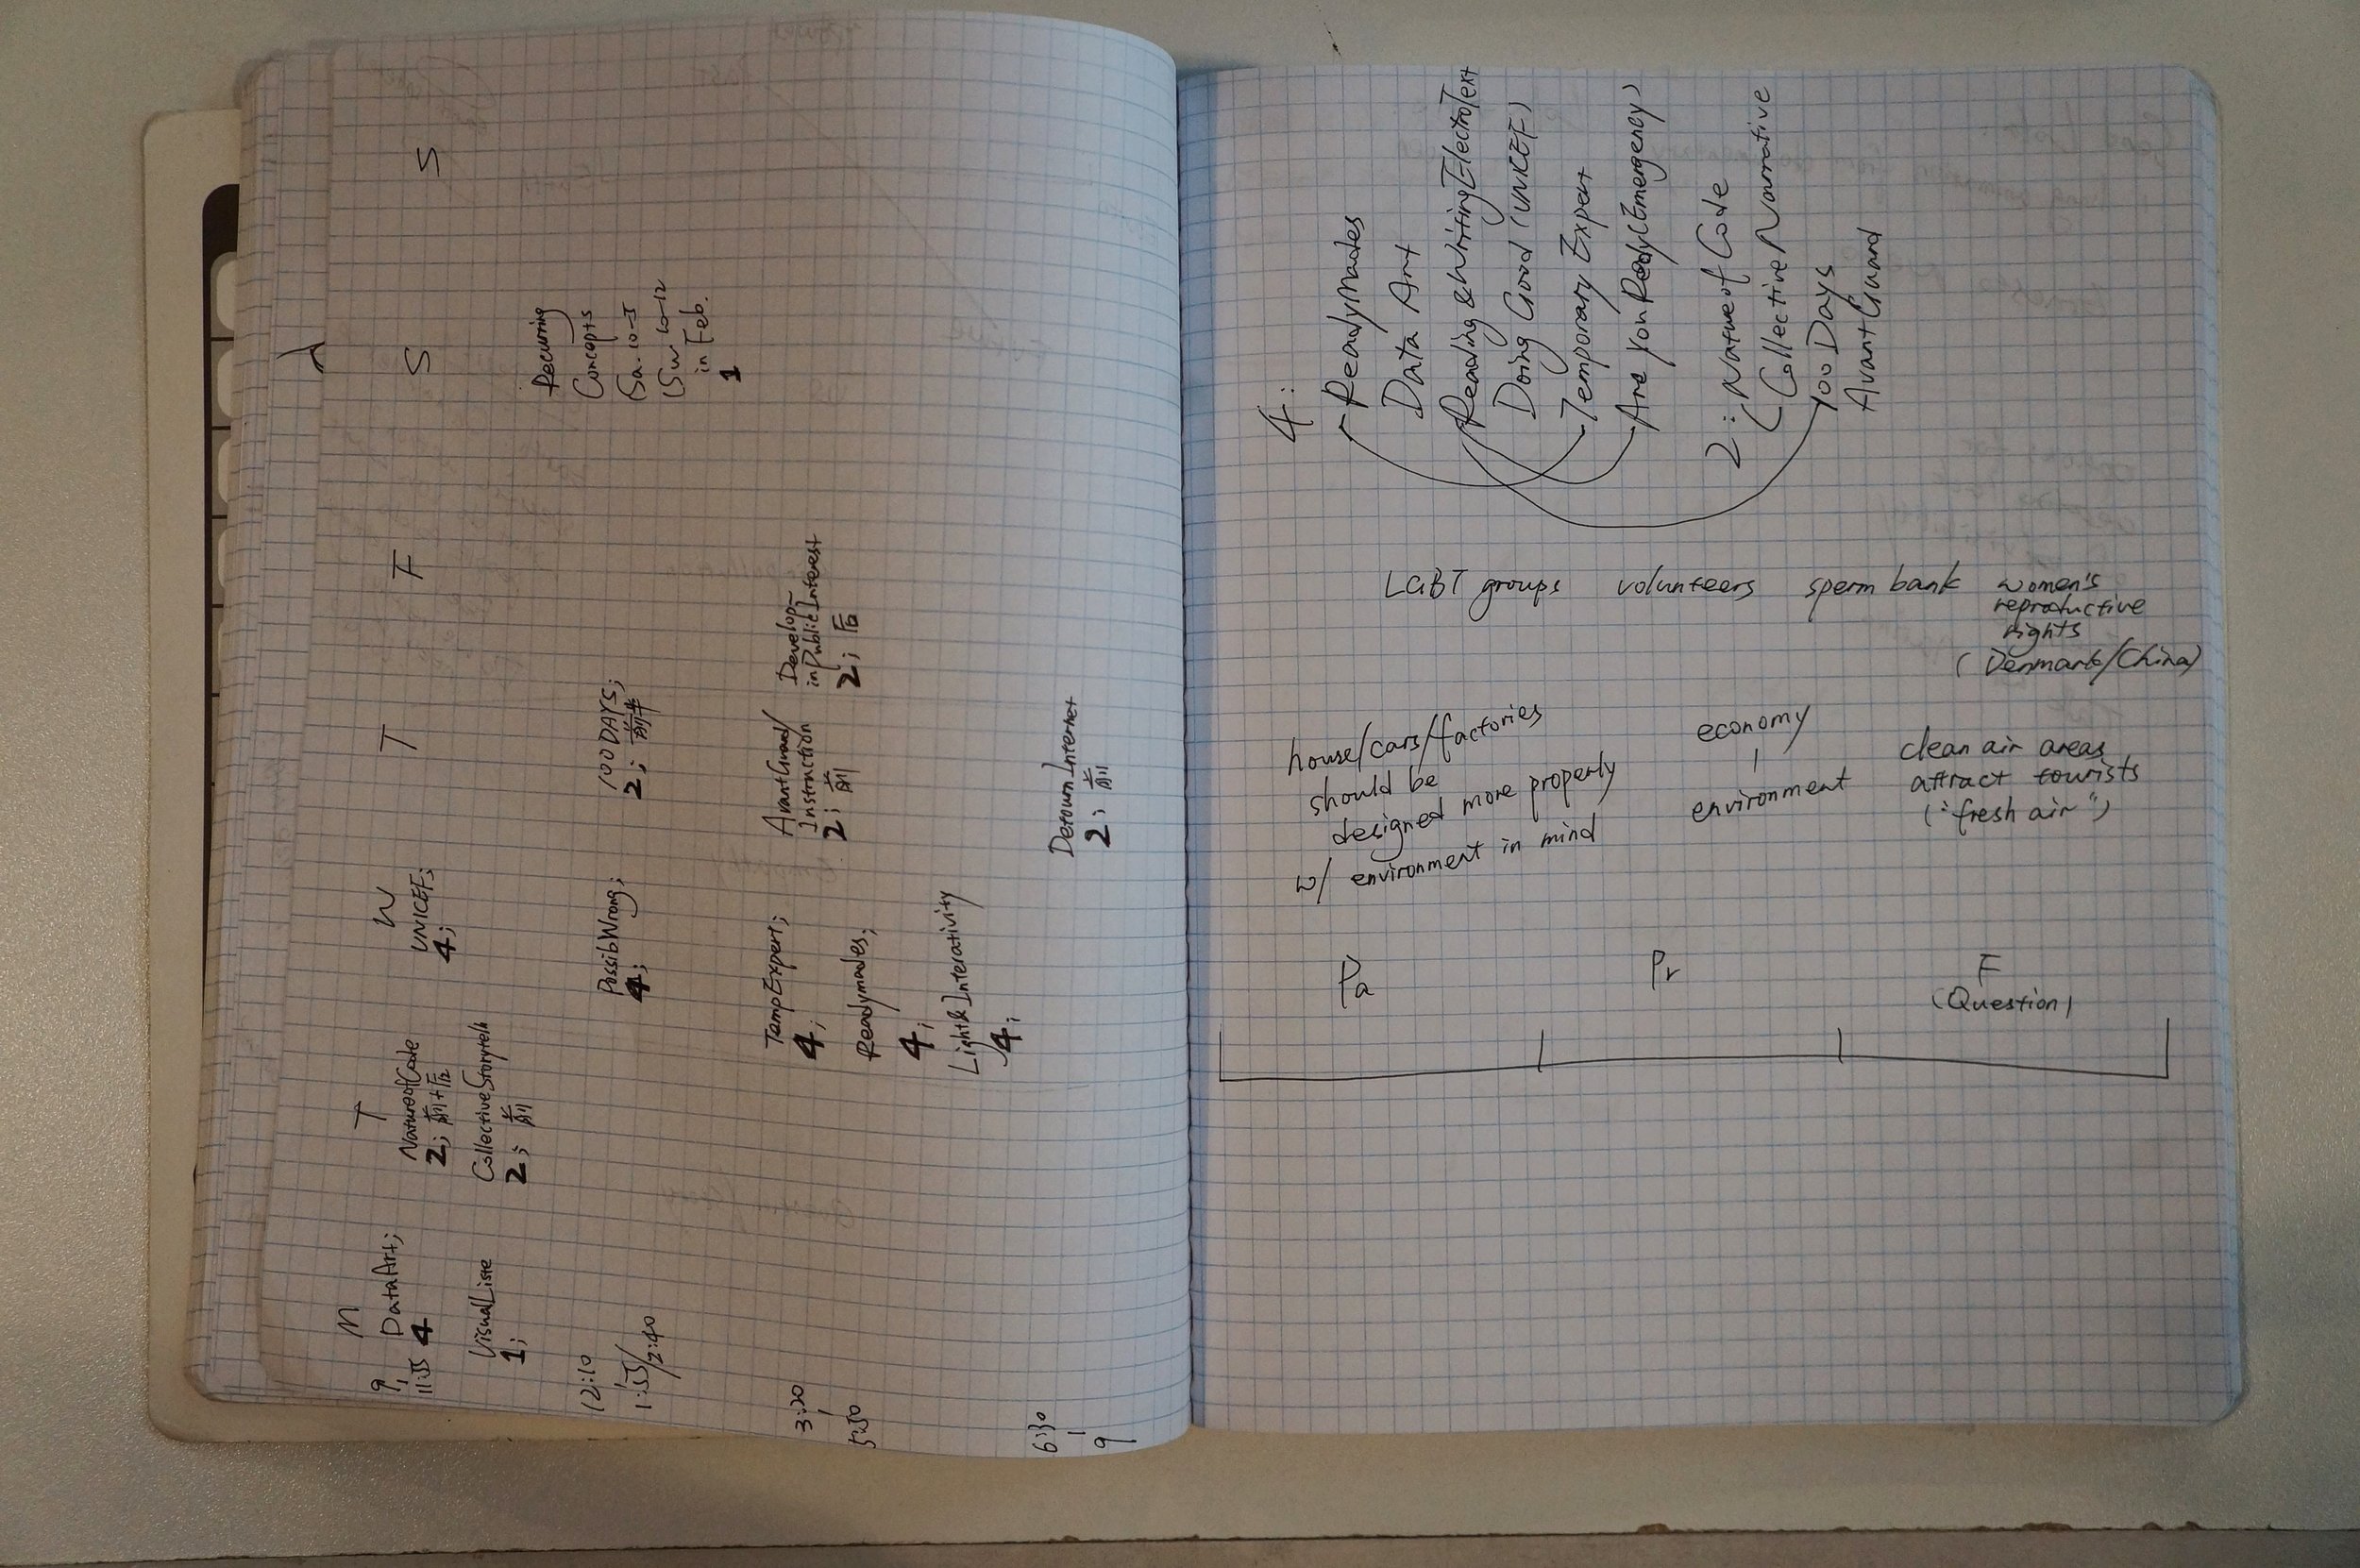 M
T
W
T
F
S
S
9
11:55
DataArt;
4
NatureofCode
2; 前+后
UNICEF;
4;
VisualListe
1;
CollectiveStorytell
2; 前
Recurring
Concepts
(Sa. 10-5
(Sun 10-12
in Feb.
1
12:10
1:55/
2:40
PossibWrong;
4;
100DAYS;
2; 前半
3:20
5:50
TempExpert;
4;
AvantGuard/
Instruction
2; 前
Develop-
inPublicInterest
2; 后
Readymades;
4;
Light&Interativity
4;
6:30
9
DetournInternet
2; 前
4:
ReadyMades
Data Art
Reading&WritingElectroText
Doing Good (UNICEF)
Temporary Expert
Are You Ready(Emergency)
2: Nature of Code
Collective Narrative
100 Days
AvantGuard
LGBT groups volunteers sperm bank women's
reproductive
rights
(Denmark/China)
house/cars/factories
should be
designed more properly
w/ environment in mind
economy
environment
clean air areas
attract tourists
("fresh air")
Pa
Pr
F
(Question)